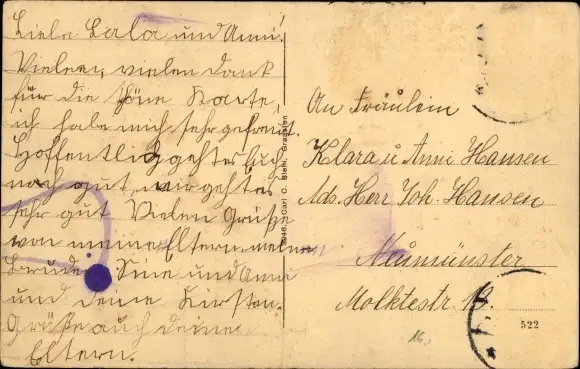 Liebe Lala und Anni!
Vielen, vielen dank
für die schöne Karte,
ich habe mich sehr gefreut.
Hoffentlich geht es Euch
noch gut, mir geht es
sehr gut Vielen Grüße
von meine Eltern, meine
Bruder Sine und Anni
und deine Kirsten.
Grüße auch deine
Eltern.
5948. Carl C. Biehl,
An Fräulein
Klara u Anni Hansen
Ads. Herr Joh. Hansen
Neumünster
Molktestr. 10.
16.
522